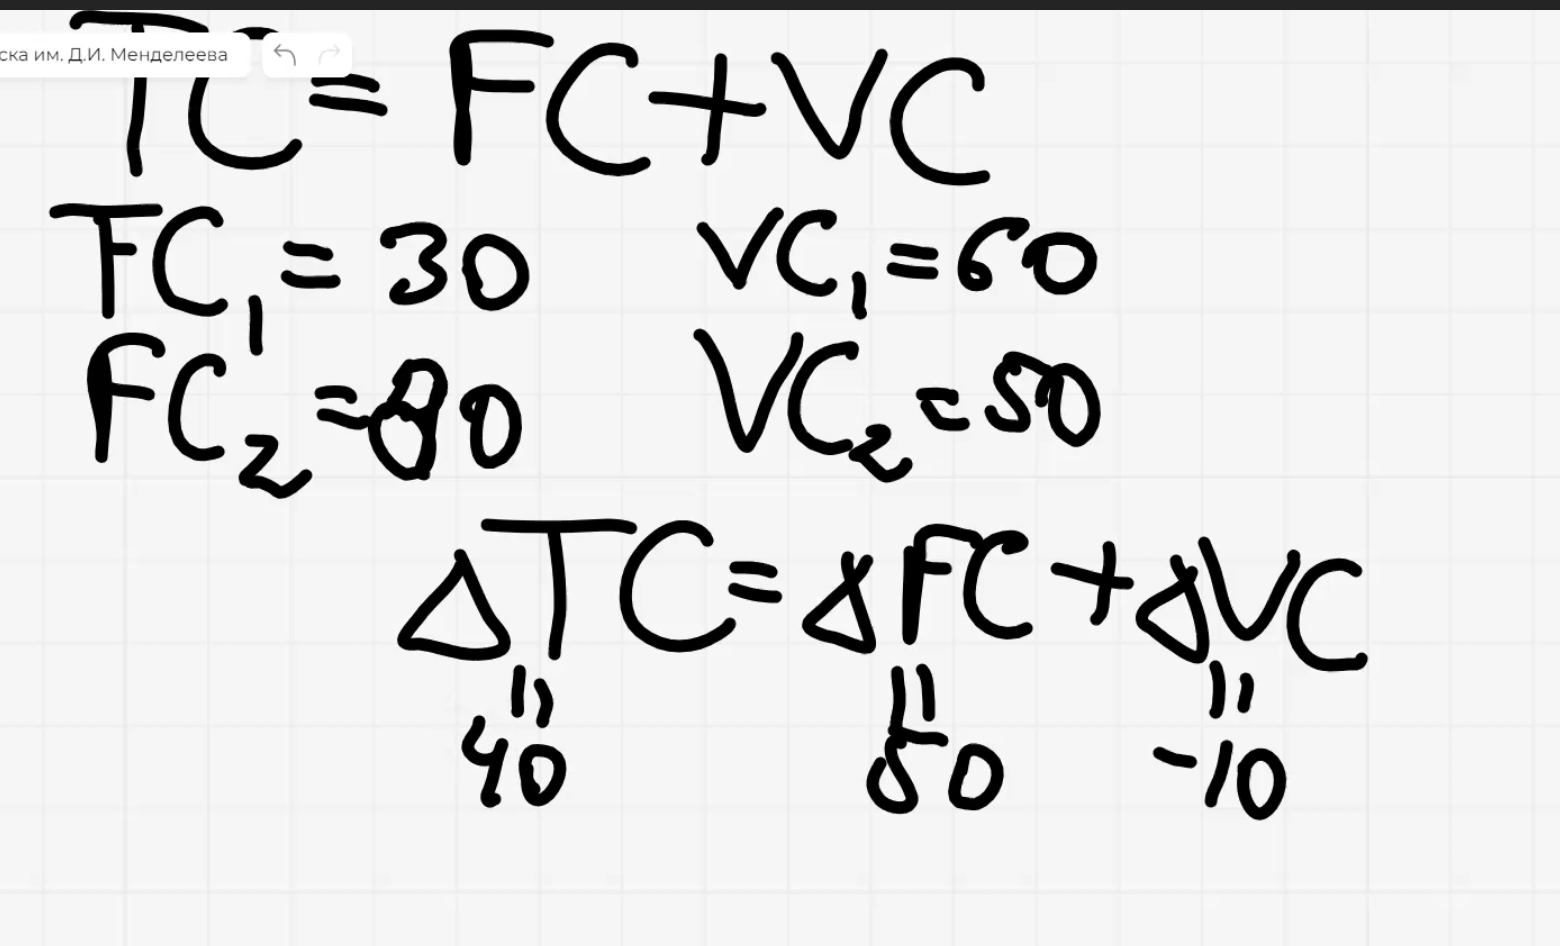 ска им. Д.И. Менделеева
TC = FC + VC
FC₁ = 30 VC₁ = 60
FC₂ = 80 VC₂ = 50
ΔTC = ΔFC + ΔVC
= = =
40 50 -10